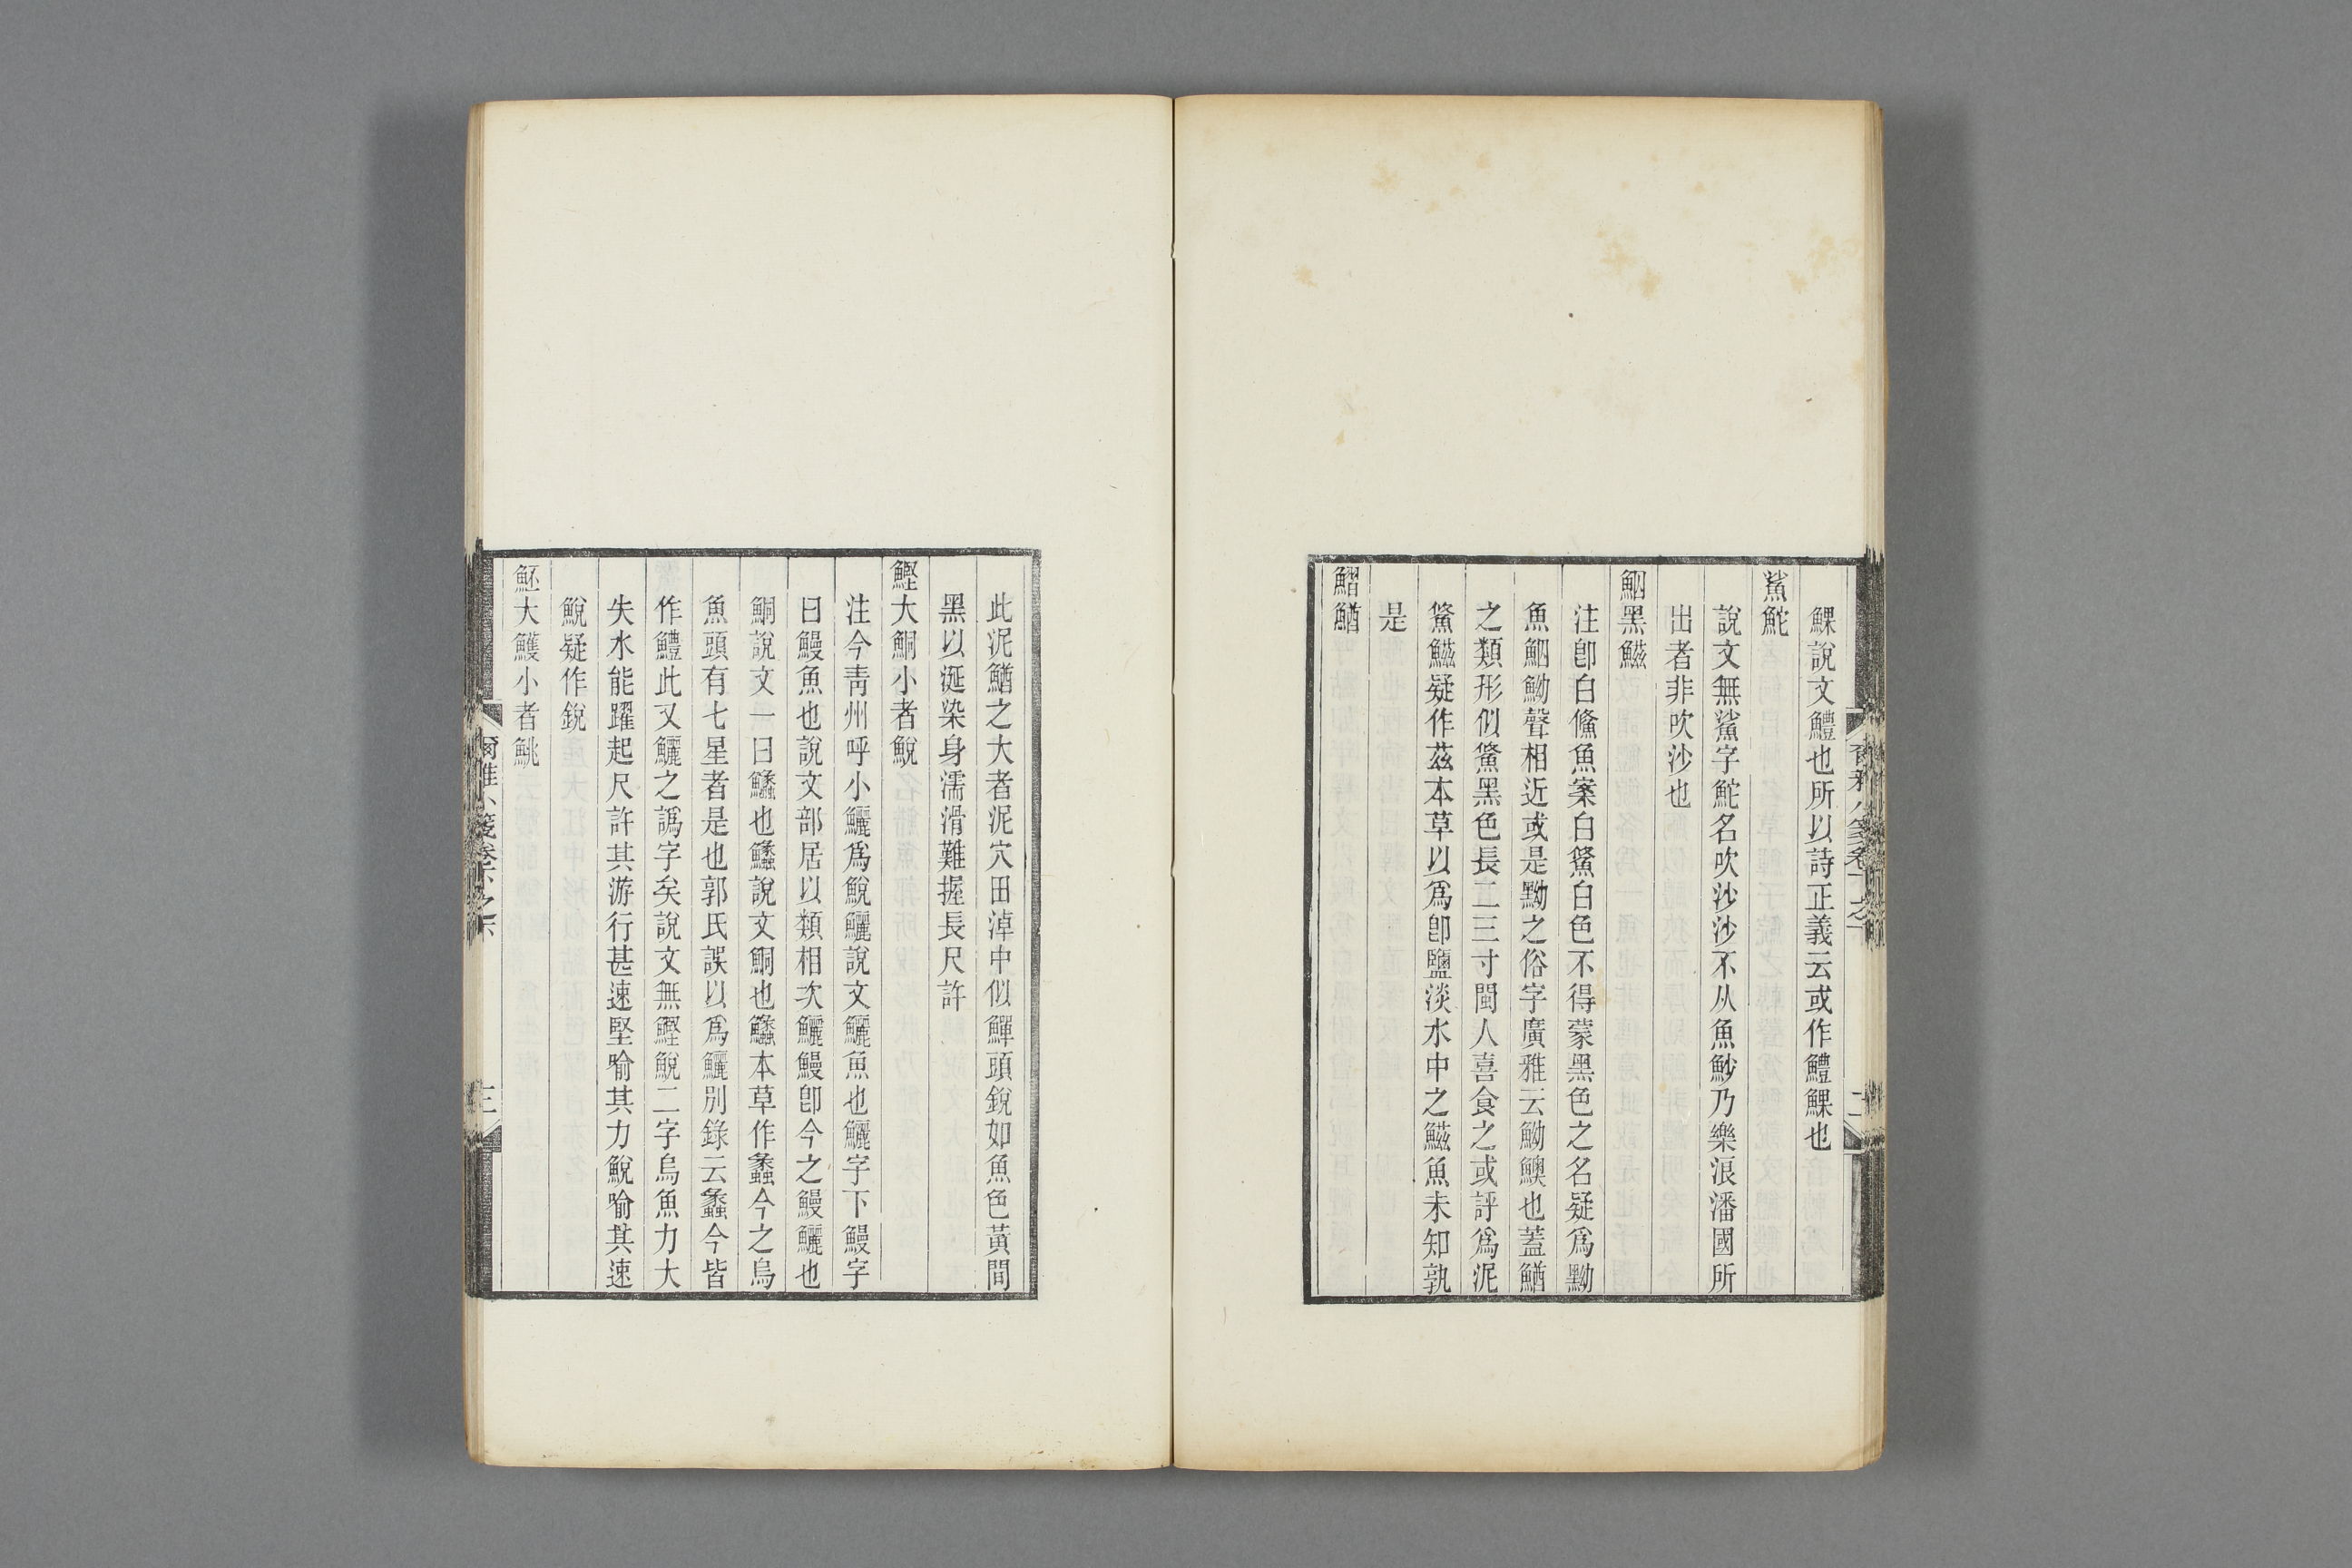 鰥說文鱧也所以詩正義云或作鱧鰥也
鯊鮀
說文無鯊字鮀名吹沙沙不从魚魦乃樂浪潘國所
出者非吹沙也
鮂黑鰦
注卽白鯈魚案白䱗白色不得蒙黑色之名疑爲黝
魚鮂魩聲相近或是黝之俗字廣雅云魩鱮也蓋鰌
之類形似䱗黑色長二三寸閩人喜食之或評爲泥
䱗鰦疑作茲本草以爲卽鹽淡水中之鰦魚未知孰
是
鰼鰌
此泥鰌之大者泥穴田淖中似鱓頭銳如魚色黃間
黑以涎染身濡滑難握長尺許
鰹大鮦小者鮵
注今靑州呼小鱺爲鮵鱺說文鱺魚也鱺字下鰻字
曰鰻魚也說文部居以類相次鱺鰻卽今之鰻鱺也
鮦說文一曰鱶也鱶說文鮦也鱶本草作蠡今之烏
魚頭有七星者是也郭氏誤以爲鱺別錄云蠡今皆
作鱧此又鱺之譌字矣說文無鰹鮵二字烏魚力大
失水能躍起尺許其游行甚速堅喻其力鮵喻其速
鮵疑作銳
魾大鱯小者鮡
爾雅小箋卷下之下
三